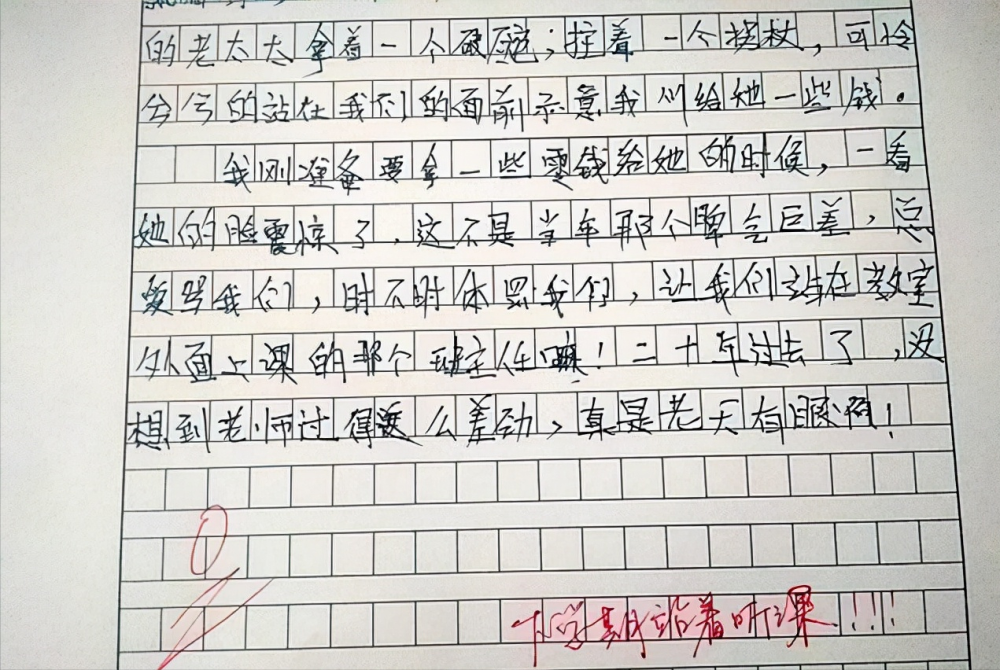 的老太太拿着一个破碗；拄着一个拐杖，可怜
兮兮的站在我们的面前示意我们给她一些钱。
我刚准备要拿一些零钱给她的时候，一看
她的脸震惊了，这不是当年那个脾气巨差，总
要骂我们，时不时体罚我们，让我们站在教室
外面上课的那个班主任嘛！二十年过去了，没
想到老师过得这么差劲，真是老天有眼啊！
0
下学期站着听课！！！